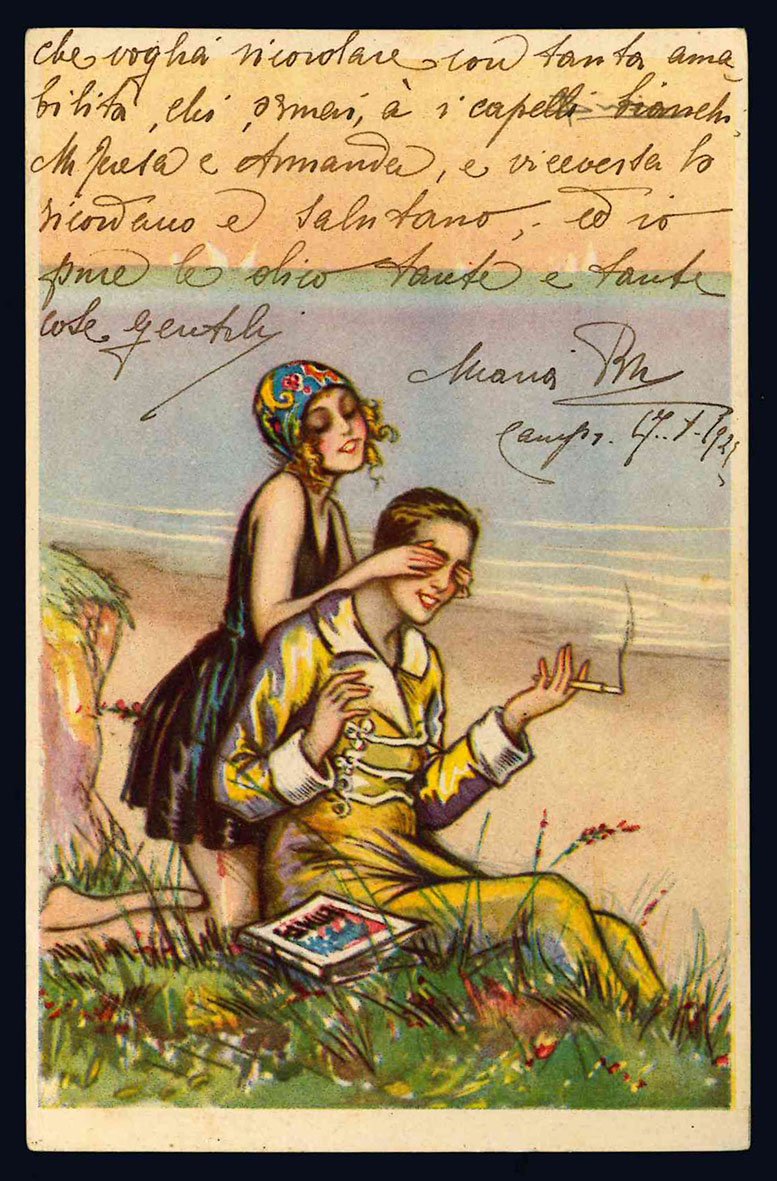 che voglia ricordare con tanta ama-
bilità, chi, ormai, à i capelli bianchi.
e Armanda, e viceversa lo
ricordano e salutano, - ed io
pure le dico tante e tante
cose gentili
Maria
17.